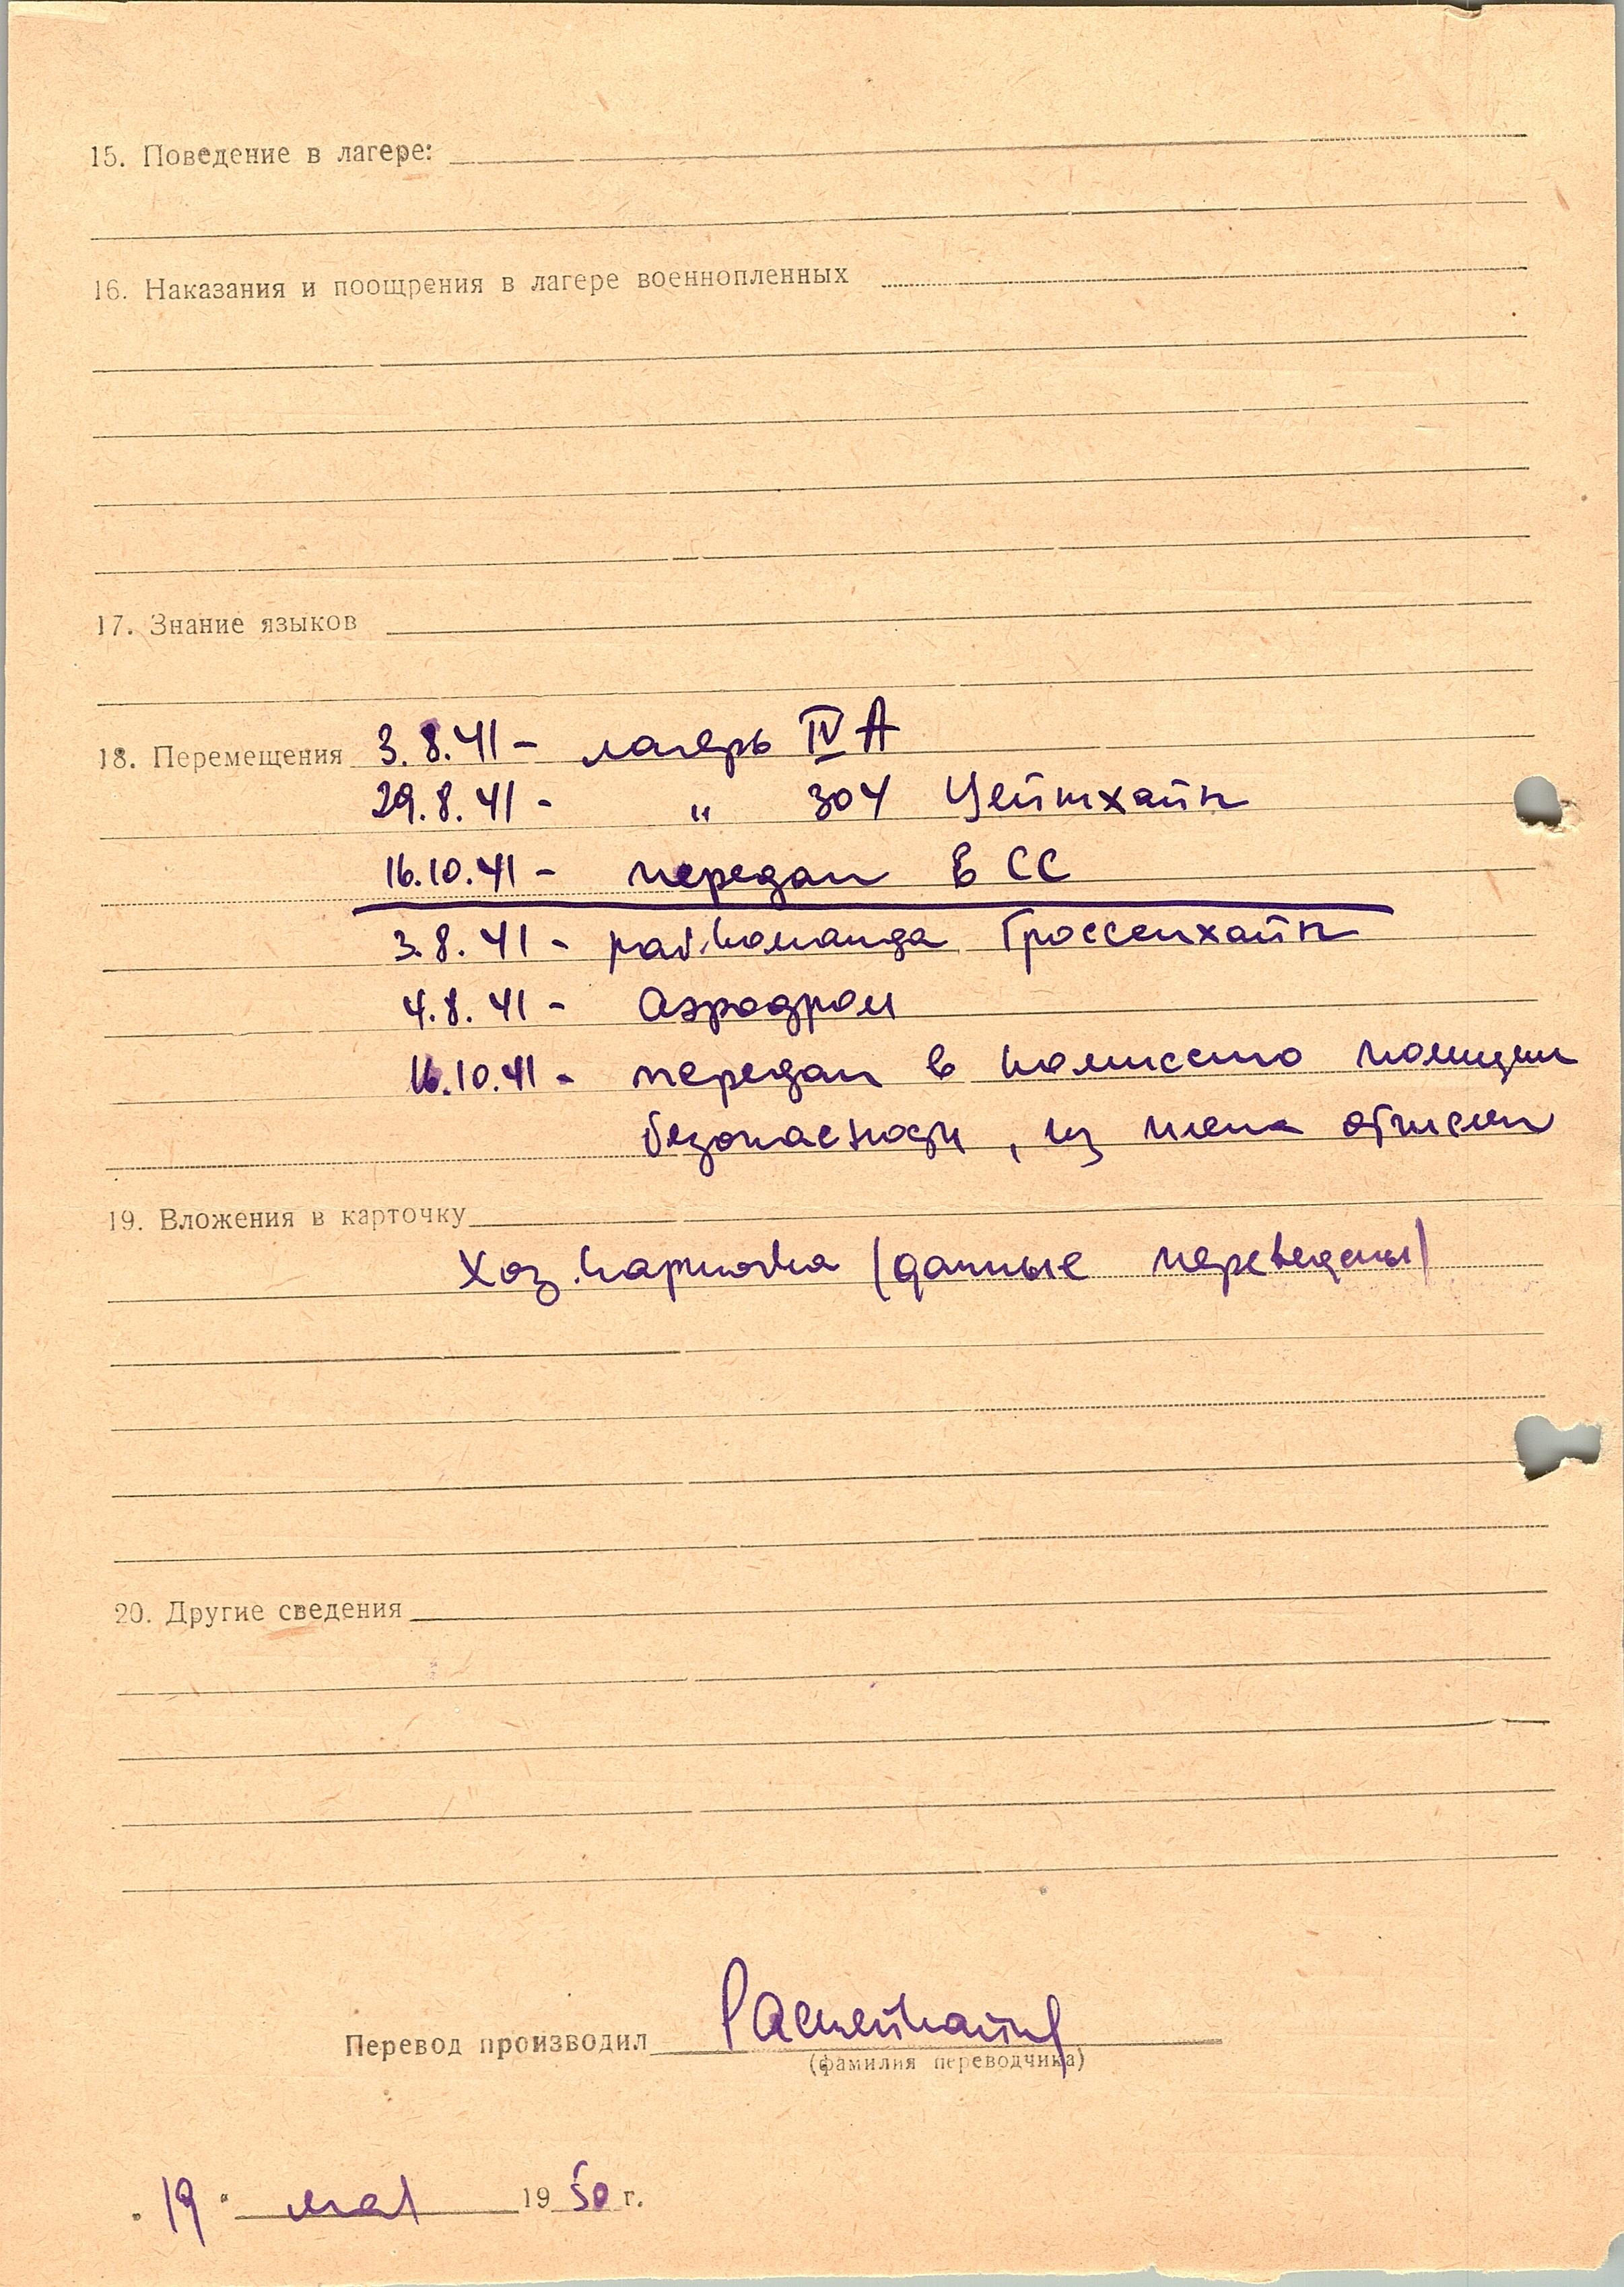 15. Поведение в лагере:
16. Наказания и поощрения в лагере военнопленных
17. Знание языков
18. Перемещения 3.8.41 - лагерь IV А
29.8.41 - " 304 Цейтхайн
16.10.41 - передан в СС
3.8.41 - раб.команда Гроссенхайн
4.8.41 - Аэродром
16.10.41 - передан в комиссию полиции
безопасности, из плена отчислен
19. Вложения в карточку
Хоз.карточка (данные переведены)
20. Другие сведения
Перевод производил
(фамилия переводчика)
"19" мая 1950 г.